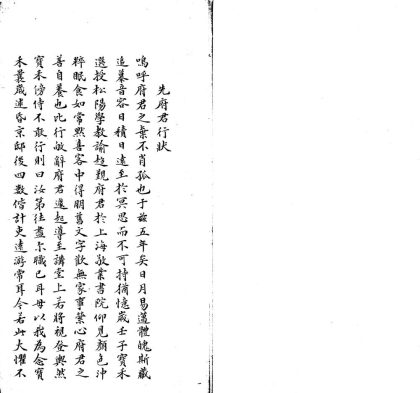 先府君行狀
嗚呼府君之棄不肖孤也于茲五年矣日月易邁體魄斯藏
追慕音容日積日遠至於冥思而不可持猶憶歲壬子寶禾
選授松陽學教諭趨觀府君於上海敬業書院仰見顏色沖
粹眠食如常點喜容中得朋舊文字歡無家事縈心府君之
善自養也比行敬辭府君遽起導至講堂上若將視登輿然
寶禾傍侍不敢行則曰汝第往盡尒職已耳毋以我為念寶
禾曩歲迷昏京邸後四數偕計吏遠游常耳今若此大懼不